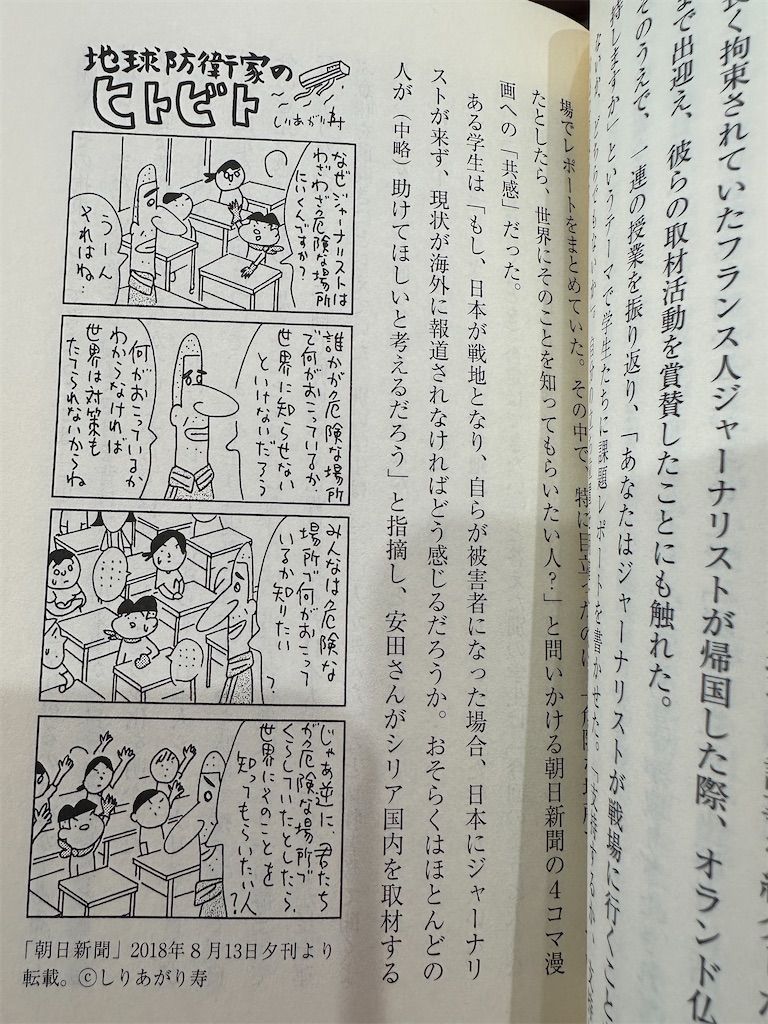 長く拘束されていたフランス人ジャーナリストが帰国した際、オランド仏
まで出迎え、彼らの取材活動を賞賛したことにも触れた。
そのうえで、一連の授業を振り返り、「あなたはジャーナリストが戦場に行くこと
持しますか」というテーマで学生たちに課題レポートを書かせた。
場でレポートをまとめていた。その中で、特に目立ったのは
たとしたら、世界にそのことを知ってもらいたい人？」と問いかける朝日新聞の４コマ漫
画への「共感」だった。
ある学生は「もし、日本が戦地となり、自らが被害者になった場合、日本にジャーナリ
ストが来ず、現状が海外に報道されなければどう感じるだろうか。おそらくはほとんどの
人が（中略）助けてほしいと考えるだろう」と指摘し、安田さんがシリア国内を取材する
地球防衛家の
ヒトビト
しりあがり寿
なぜジャーナリストは
わざわざ危険な場所
にいくんですか？
うーん
それはね…
誰かが危険な場所
で何がおこっているか
世界に知らせない
といけないだろう
何がおこっているか
わからなければ
世界は対策も
たてられないからね
みんなは危険な
場所で何がおこって
いるか知りたい
？
じゃあ逆に、君たち
が危険な場所で
くらしていたとしたら、
世界にそのことを
知ってもらいたい人
？
「朝日新聞」2018年８月13日夕刊より
転載。©しりあがり寿